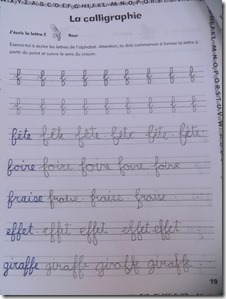 La calligraphie
J'écris la lettre f.
Exerce-toi à écrire les lettres de l'alphabet. Attention, tu dois commencer à former la lettre à
partir du point et suivre le sens du crayon.
f f f f f f f f f f
f f f f f f f f f f
fête fête fête fête fête fête
foire foire foire foire foire
fraise fraise fraise fraise
effet effet effet effet effet
giraffe giraffe giraffe giraffe
19